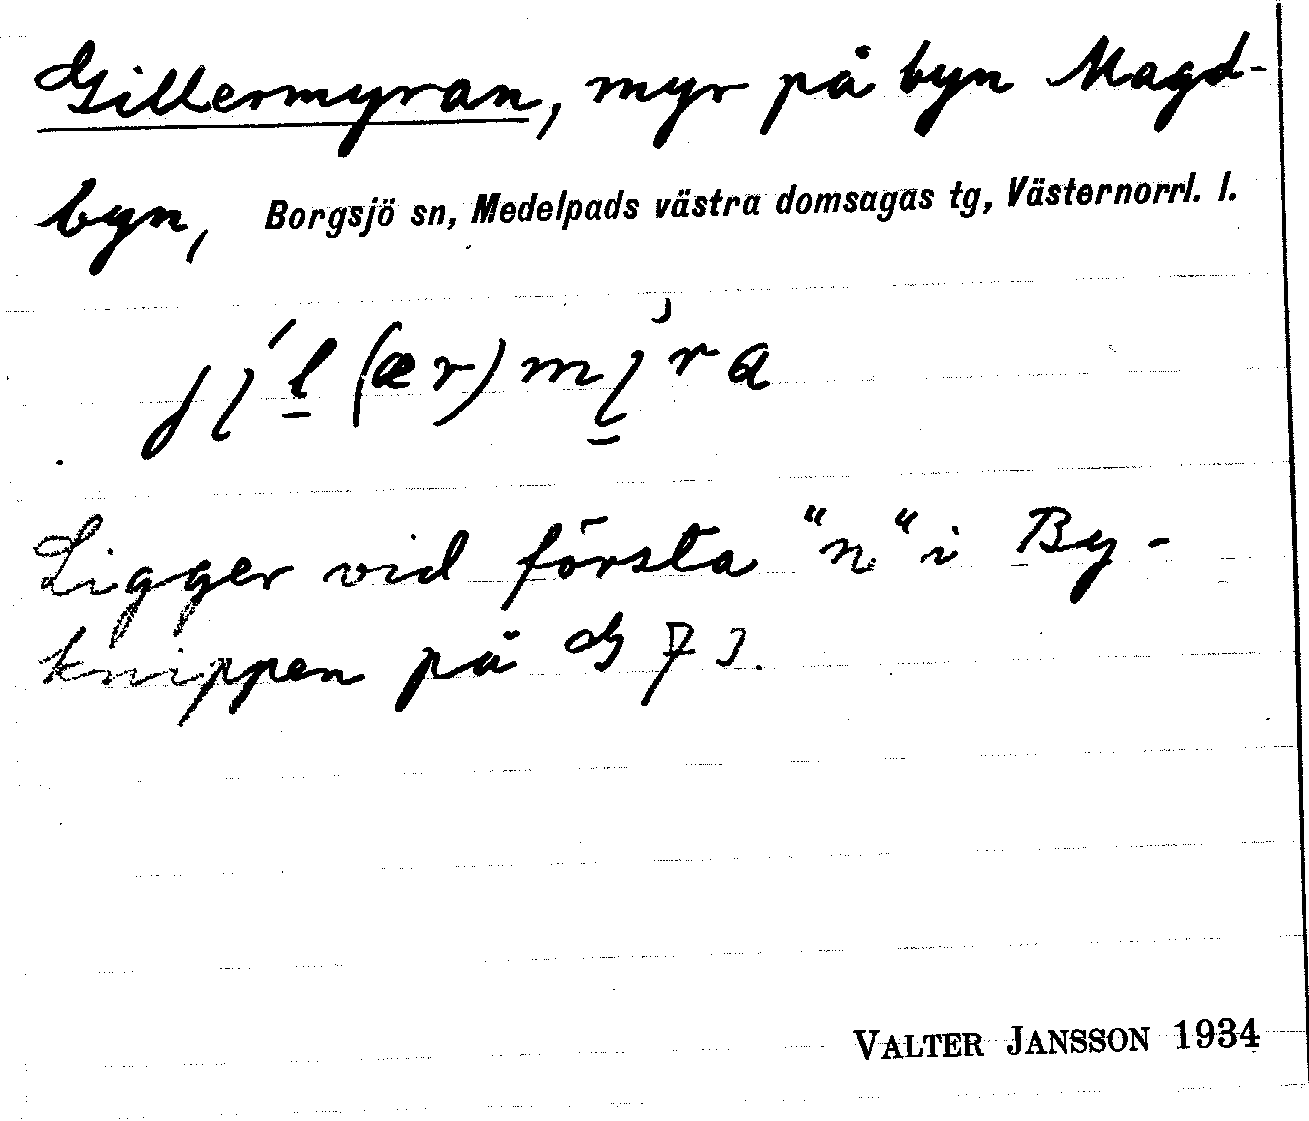 Gillermyran, myr på byn Magd-
byn, Borgsjö sn, Medelpads västra domsagas tg, Västernorrl. l.
Ligger vid första "n" i By-
knippen på G 7 J.
VALTER JANSSON 1934